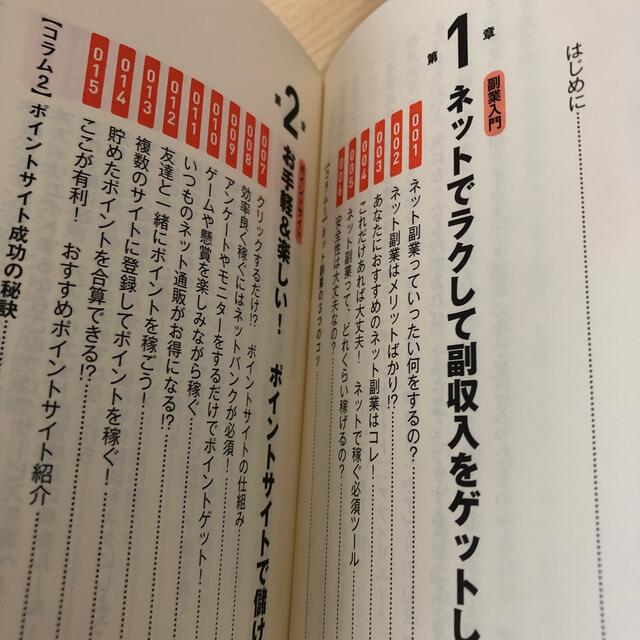 はじめに
第1章
副業入門
ネットでラクして副収入をゲットし
001 ネット副業っていったい何をするの?
002 ネット副業はメリットばかり!?
003 あなたにおすすめのネット副業はコレ!
004 これだけあれば大丈夫! ネットで稼ぐ必須ツール
005 ネット副業って、どれくらい稼げるの?
006 安全性は大丈夫なの?
【コラム1】ネット副業の3つのコツ
第2章
ポイントサイト
お手軽&楽しい! ポイントサイトで儲け
007 クリックするだけ!? ポイントサイトの仕組み
008 効率良く稼ぐにはネットバンクが必須!
009 アンケートやモニターをするだけでポイントゲット!
010 ゲームや懸賞を楽しみながら稼ぐ
011 いつものネット通販がお得になる!?
012 友達と一緒にポイントを稼ごう!
013 複数のサイトに登録してポイントを稼ぐ!
014 貯めたポイントを合算できる!?
015 ここが有利! おすすめポイントサイト紹介
【コラム2】ポイントサイト成功の秘訣